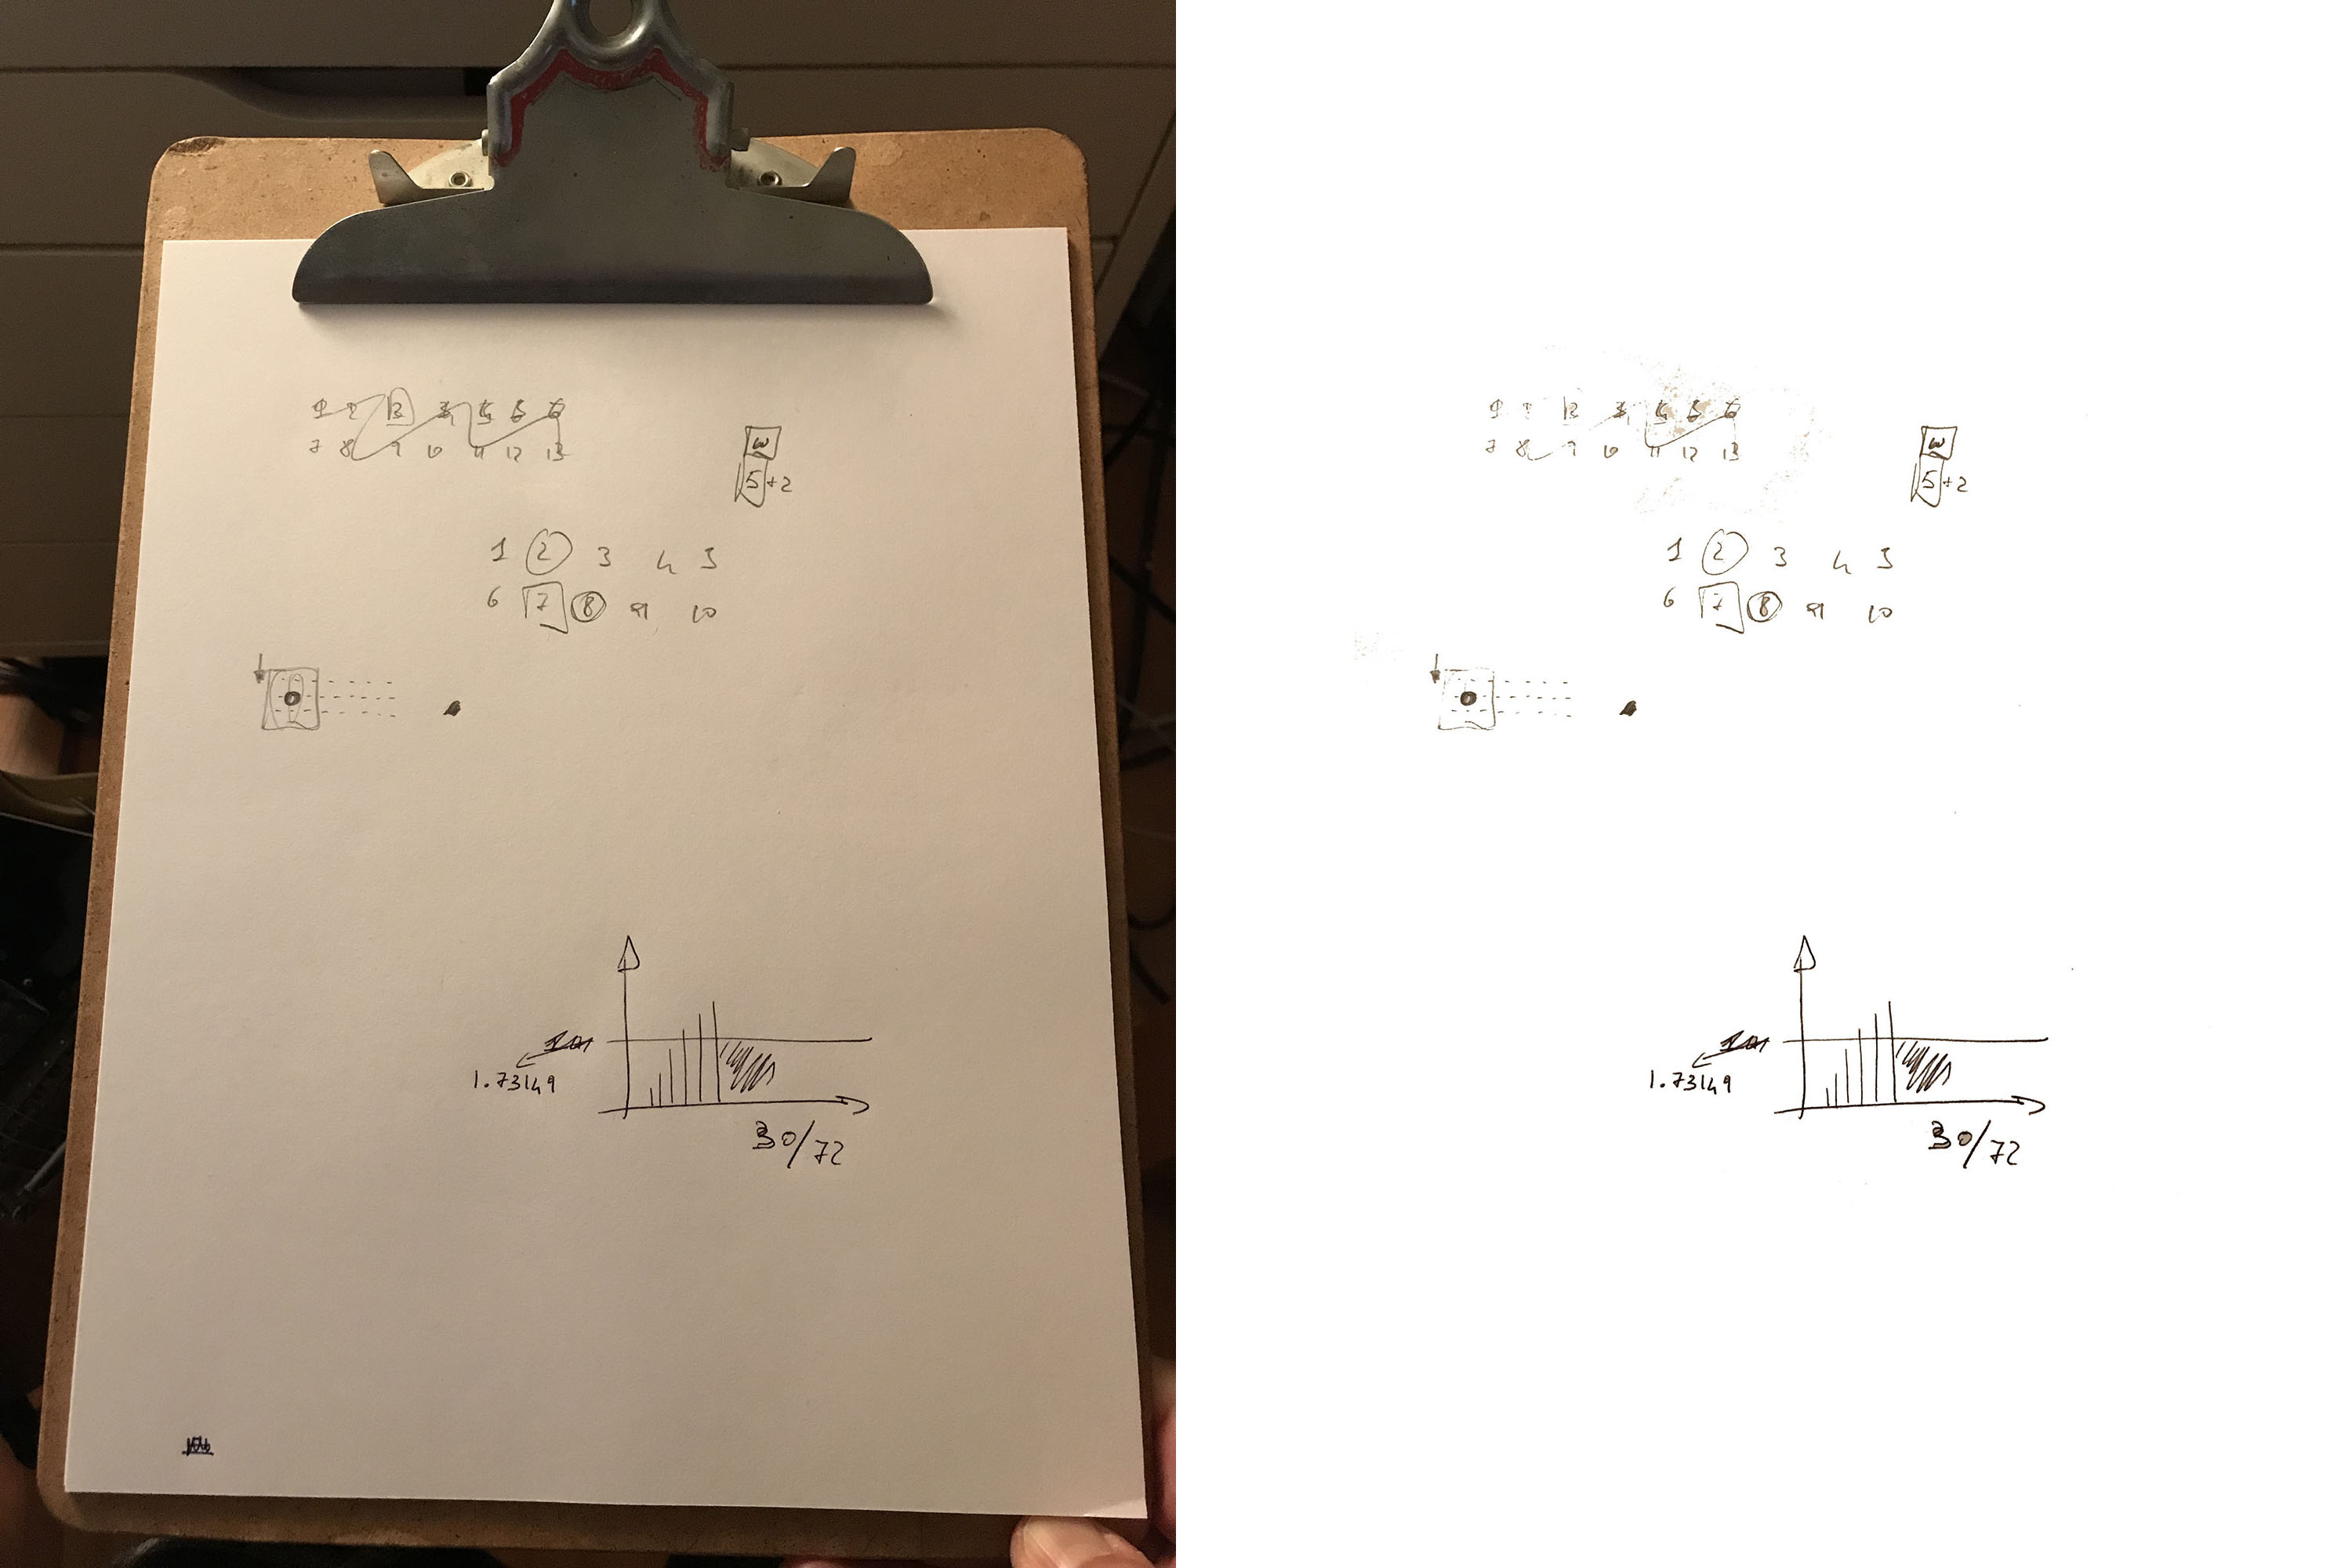 7 8 9 10 11 12 13
W
5+2
1 2 3 4 5
6 7 8 9 10
1.73149
30/72
7 8 9 10 11 12 13
W
5+2
1 2 3 4 5
6 7 8 9 10
1.73149
30/72